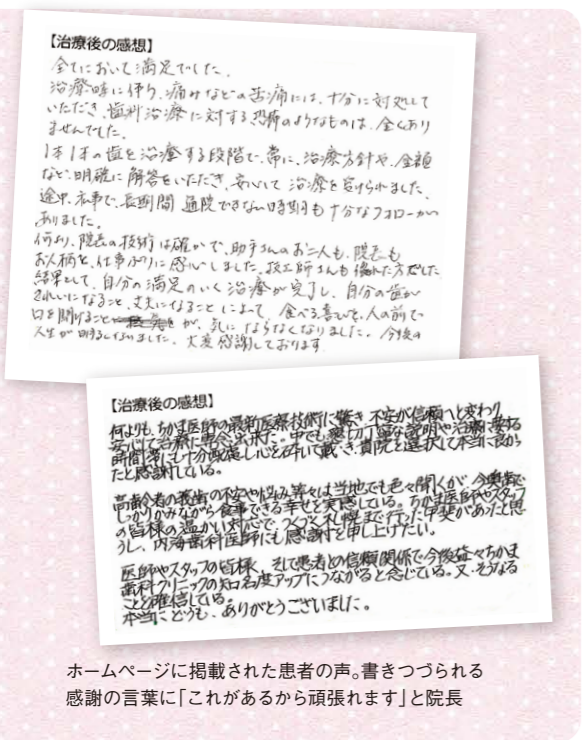 【治療後の感想】
全てにおいて満足でした。
治療時に伴う、痛みなどの苦痛には、十分に対処して
いただき、歯科治療に対する恐怖のようなものは、全くあり
ませんでした。
1本1本の歯を治療する段階で、常に、治療方針や、金額
など、明確に解答をいただき、安心して治療を受けられました。
途中、私事で、長期間通院できない時期も十分なフォローが
ありました。
何より、院長の技術は確かで、助手さんのお二人も、院長も
お人柄と、仕事ぶりに感心しました。技工師さんも優れた方でした
結果として、自分の満足のいく治療が完了し、自分の歯が
きれいになること、丈夫になることによって、食べる喜びと、人の前で
口を開けることが、気にならなくなりました。今後の
人生が明るくなりました。大変感謝しております
【治療後の感想】
何よりも、ちかま医師の最新医療技術に驚き、不安が信頼へと変わり
安心して治療に専念出来た。中でも親切丁寧な説明や治療に要する
時間等にも十分配慮し心を砕いて戴き、貴院を選択して本当に良かっ
たと感謝している。
高齢者の義歯の不安や悩み等々は当地でも色々聞くが、今奥歯で
しっかりかみながら食事できる幸せを実感している。ちかま医師やスタッフ
の皆様の温かい対応で、つくづく札幌まで行った甲斐があったと思
うし、内海歯科医師にも感謝を申し上げたい。
医師やスタッフの皆様、そして患者との信頼関係で今後益々ちかま
歯科クリニックの知名度アップにつながると念じている。又、そうなる
ことを確信している。
本当にどうも、ありがとうございました。
ホームページに掲載された患者の声。書きつづられる
感謝の言葉に「これがあるから頑張れます」と院長